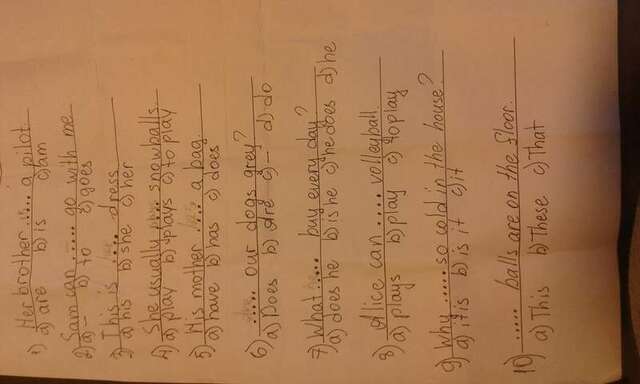 1) Her brother .is.. a pilot.
a) are b) is c) am
2) Sam can ..... go with me
a) – b) to c) goes
3) This is .... dress
a) his b) she c) her
4) She usually .... snowballs.
a) play b) plays c) to play
5) His mother .... a bag.
a) have b) has c) does
6) ..... our dogs grey?
a) Does b) Are c) – d) do
7) What ..... buy every day?
a) does he b) is he c) he does d) he
8) Alice can .... volleyball.
a) plays b) play c) to play
9) Why ..... so cold in the house?
a) it is b) is it c) it
10) ..... balls are on the floor.
a) This b) These c) That